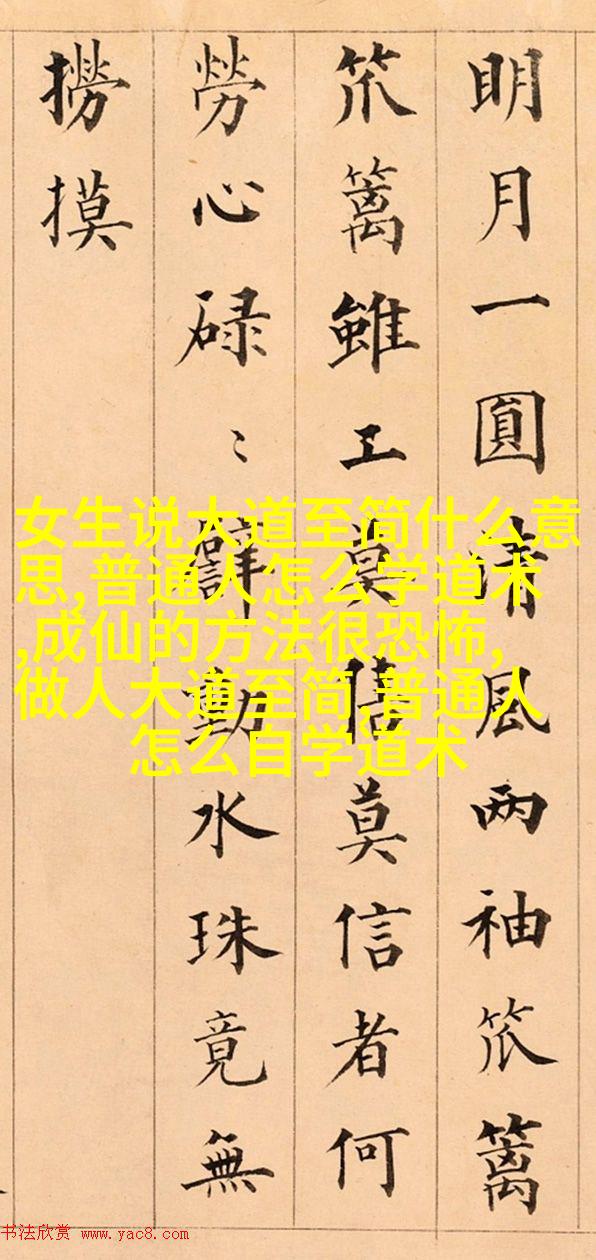 明月一圓清風两袖笊篱
笊篱雖工莫信莫信者何
勞心碌〻動水珠竟無
撈摸
女生说大道至简什么意
思,普通人怎么学道术
,成仙的方法很恐怖,
做人大道至简,普通人
怎么自学道术
书法欣赏 www.yac8.com